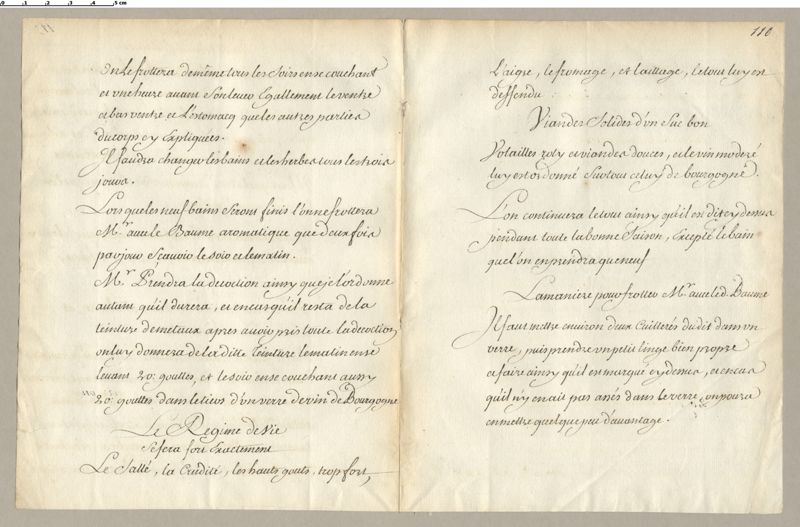 On le frottera de même tous les soirs en se couchant
et vne heure auant son leuer Egallement le ventre
et bas ventre et L'estomacq que les autres parties
du corps cy Expliquées.
Il faudra changer les bains et les herbes tous les trois
jours.
Lors que les neuf bains seront finis l'on ne frottera
Mr. auec le Baume aromatique que deux fois
par jour Sçauoir le soir et le matin.
Mr. Prendra la decoction ainsy que je l'ordonne
autant qu'il durera, et en cas qu'il resta de la
teinture de metaux apres auoir pris toute la decoction
on luy donnera de la ditte Teinture le matin en se
leuant 20: gouttes, et le soir en se couchant aussy
20: gouttes dans le tiers d'vn verre de vin de Bourgogne
Le Regime de Vie
Se fera fort Exactement
Le Sallé, la Crudité, les hauts gouts, trop fort,
110
L'aigre, le fromage, et laittage, le tout luy est
deffendu
Viandes Solides d'vn Suc bon
Volailles roty et viandes douces, et le vin moderé
luy est ordonné Surtout celuy de bourgogne.
L'on continuera le tout ainsy qu'il est dit cy dessus
pendant toute la bonne Saison, Excepté le bain
quel'on en prendra que neuf
La maniere pour frotter Mr. auec led. Baume
Il faut mettre enuiron deux Cuillerés du dit dans vn
verre, puis prendre vn petit linge bien propre
et faire ainsy qu'il est marqué cy dessus, et en cas
qu'il n'y en ait pas assés dans le verre on poura
en mettre quelque peu d'auantage.
0 1 2 3 4 5 cm